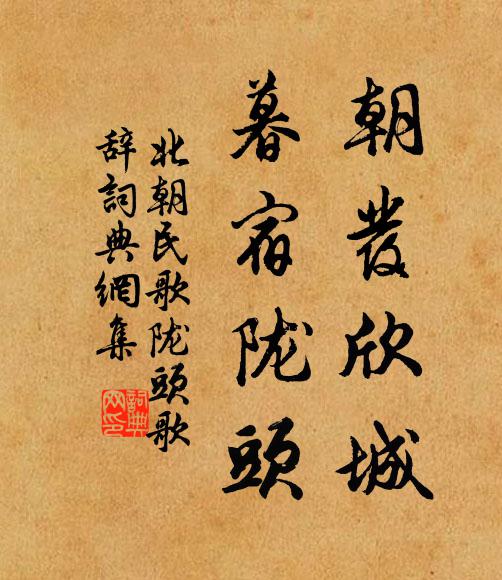 朝發欣城
暮宿陇頭
北朝民歌陇頭歌
辞詞典網集
詞典
网印